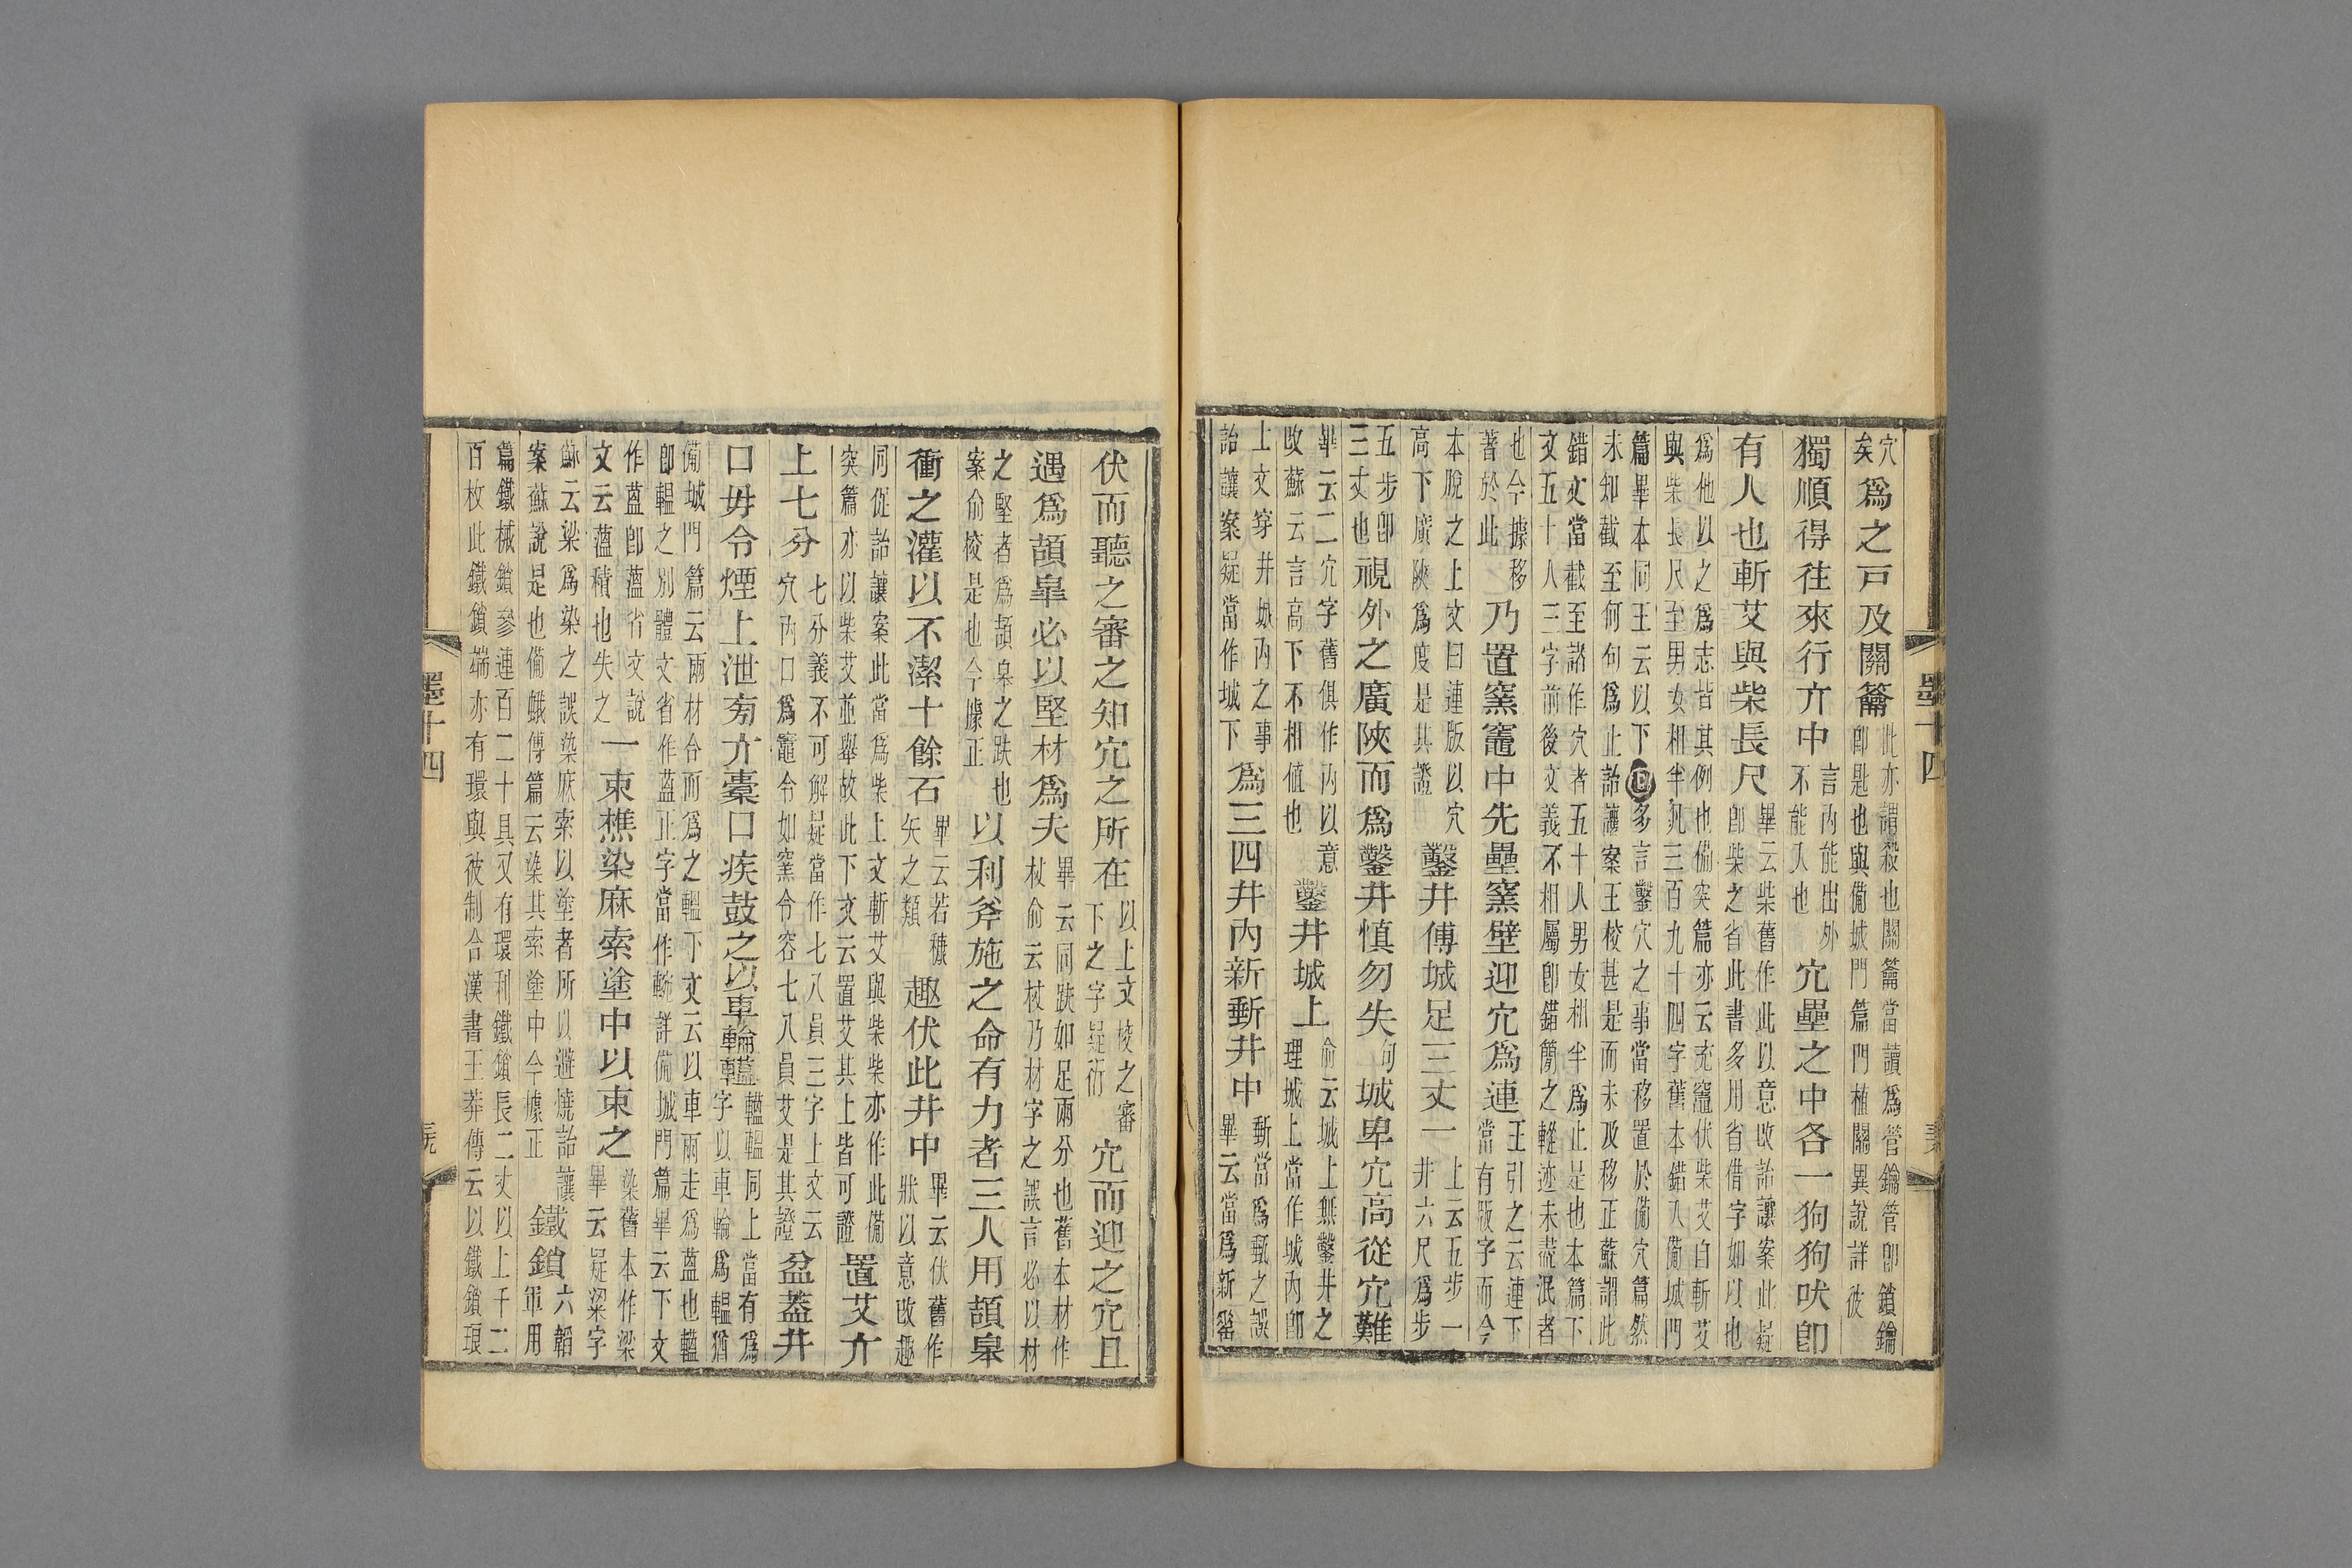 穴
矣
爲之戸及關籥
此亦謂殺也關籥當讀爲管鑰管卽鎖鑰
卽匙也與備城門篇門植關異說詳彼
獨順得往來行亣中
言內能出外
不能入也
穴壘之中各一狗狗吠卽
有人也斬艾與柴長尺
畢云柴舊作此以意改詒讓案此疑
卽柴之省此書多用省借字如以也
爲他以之爲志皆其例也備突篇亦云充竈伏柴艾白斬艾
與柴長尺至男女相半凡三百九十四字舊本錯入備城門
篇畢本同王云以下多言鑿穴之事當移置於備穴篇然
未知截至何句爲止詒讓案王校甚是而未及移正蘇謂此
錯文當截至諸作穴者五十人男女相半爲止是也本篇下
文五十八三字前後文義不相屬卽錯簡之蹤迹未盡泯者
也今據移
著於此
乃置窯竈中先壘窯壁迎穴爲連
王引之云連下
當有版字而今
本脫之上文曰連版以穴
高下廣陜爲度是其證
鑿井傅城足三丈一
上云五步一
井六尺爲步
五步卽
三丈也
視外之廣陜而爲鑿井慎勿失
句
城卑穴高從穴難
畢云二穴字舊俱作內以意
改蘇云言高下不相值也
鑿井城上
俞云城上無鑿井之
理城上當作城內卽
上文穿井城內之事
詒讓案疑當作城下
爲三四井內新斲井中
斲當爲甀之誤
畢云當爲新
墨十四
伏而聽之審之知穴之所在
以上文校之審
下之字疑衍
穴而迎之穴且
遇爲頡皐必以堅材爲夫
畢云同趺如足兩分也舊本材作
杖俞云杖乃材字之誤言必以材
之堅者爲頡皋之趺也
案俞校是也今據正
以利斧施之命有力者三人用頡皋
衝之灌以不潔十餘石
畢云若穅
矢之類
趣伏此井中
畢云伏舊作
狀以意改趣
同促詒讓案此當爲柴上文斬艾與柴柴亦作此備
突篇亦以柴艾並舉故此下文云置艾其上皆可證
置艾亣
上七分
七分義不可解疑當作七八員三字上文云
穴內口爲竈令如窯令容七八員艾是其證
盆蓋井
口毋令煙上泄旁亣橐口疾鼓之以車輪轀
轀轀同上當有爲
字以車輪爲轀猶
備城門篇云兩材合而爲之轀下文云以車兩走爲蒀也轀
卽轀之別體文省作蒀止字當作輓詳備城門篇畢云下文
作蒀卽薀省文說
文云薀積也失之
一束樵染麻索塗中以束之
染舊本作梁
畢云疑梁字
蘇云梁爲染之誤染麻索以塗者所以避燒詒讓
案蘇說是也備蛾傅篇云染其索塗中今據正
鐵鎖
六韜
軍用
篇鐵械鎖參連百二十具又有環利鐵鎖長二丈以上千二
百枚此鐵鎖端亦有環與彼制合漢書王莽傳云以鐵鎖琅
墨十四